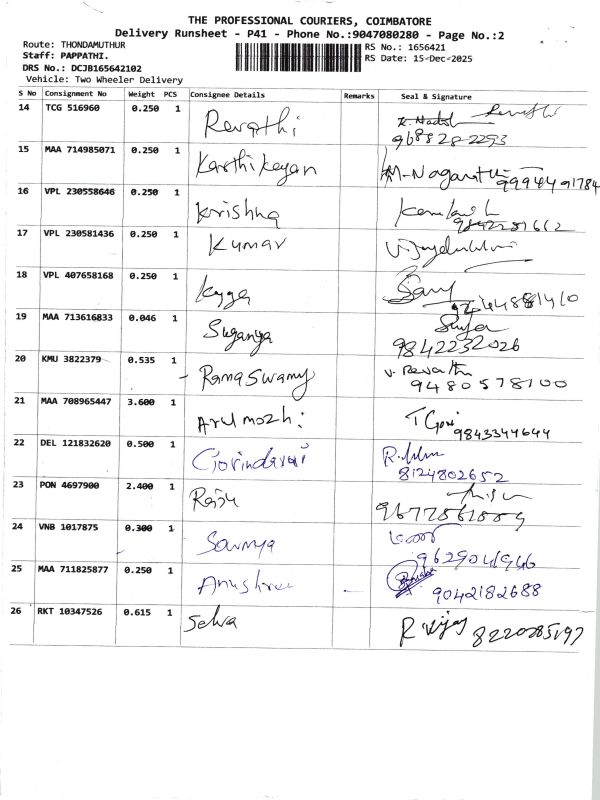 THE PROFESSIONAL COURIERS, COIMBATORE
Delivery Runsheet - P41 - Phone No.:9047080280 - Page No.:2
Route: THONDAMUTHUR RS No.: 1656421
Staff: PAPPATHI. RS Date: 15-Dec-2025
DRS No.: DCJB165642102
Vehicle: Two Wheeler Delivery
S No Consignment No Weight PCS Consignee Details Remarks Seal & Signature
14 TCG 516960 0.250 1 Revathi
968828-2293
15 MAA 714985071 0.250 1 Karthikeyan M-Nagarathi
9994491784
16 VPL 230558646 0.250 1 Krishna
9842281612
17 VPL 230581436 0.250 1 Kumar
18 VPL 407658168 0.250 1
19 MAA 713616833 0.046 1 Suganya
9842232026
20 KMU 3822379 0.535 1 Ramaswamy V. Revathi
9480578100
21 MAA 708965447 3.600 1 Arumozhi T Gori
9843344644
22 DEL 121832620 0.500 1 Govindaraj
8124802652
23 PON 4697900 2.400 1 Raju
24 VNB 1017875 0.300 1 Sowmya
9629041946
25 MAA 711825877 0.250 1 Anushree
9042182688
26 RKT 10347526 0.615 1 Selva R Vijay 8220285197